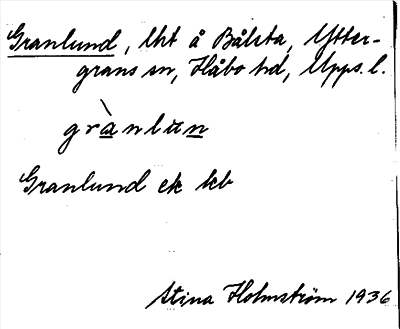 Granlund, lht å Bålsta, Ytter-
grans sn, Håbo hd, Upps. l.
grànlun
Granlund ek kb
Stina Holmström 1936